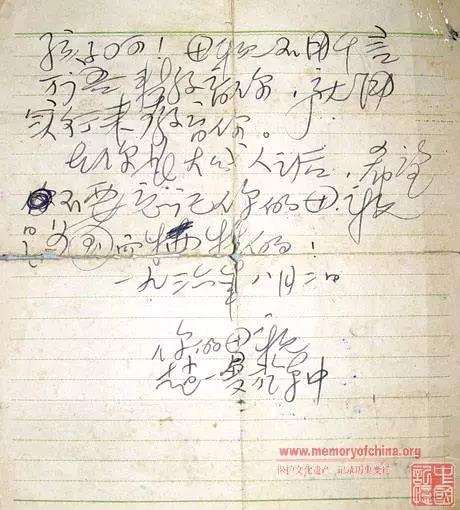 孩子呵！母亲不用千言
万语来教育你，就用
实行来教育你。
在你长大成人之后，希望
不要忘记你的母亲
是为国而牺牲的！
一九三六年八月二日
你的母亲
赵一曼於车中
www.memoryofchina.org
保护文化遗产 记录历史变迁